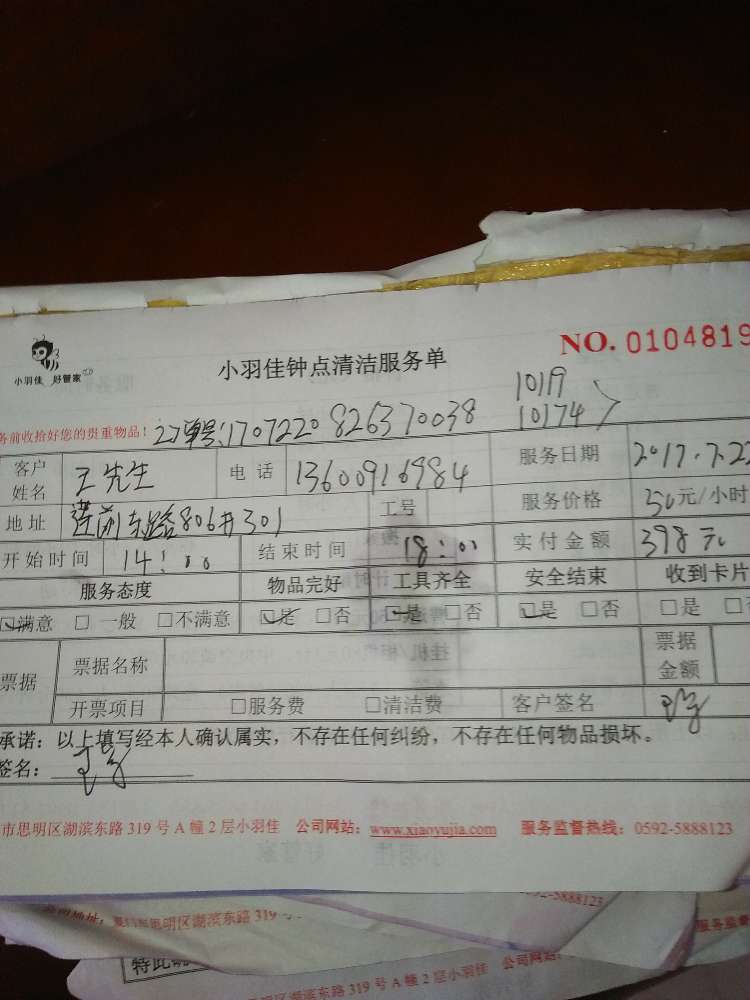 小羽佳 好管家
小羽佳钟点清洁服务单
NO. 0104819
务前收拾好您的贵重物品!
单号:1707220826370038
1019
10174
客户姓名 王先生 电话 13600916984 服务日期 2017.7.22
地址 806# 301 工号 服务价格 元/小时
开始时间 14:00 结束时间 18:00 实付金额 398元
服务态度 物品完好 工具齐全 安全结束 收到卡片
☑满意 □一般 □不满意 ☑是 □否 ☑是 □否 ☑是 □否 □是 □否
票据 票据名称 票据金额
开票项目 □服务费 □清洁费 客户签名
承诺:以上填写经本人确认属实,不存在任何纠纷,不存在任何物品损坏。
签名:
市思明区湖滨东路 319 号 A 幢 2 层小羽佳 公司网站:www.xiaoyujia.com 服务监督热线:0592-5888123
0592-5888123
思明区湖滨东路 319
服务监督
特此
湖滨东路 319 号 A 幢 2 层小羽佳 公司网站